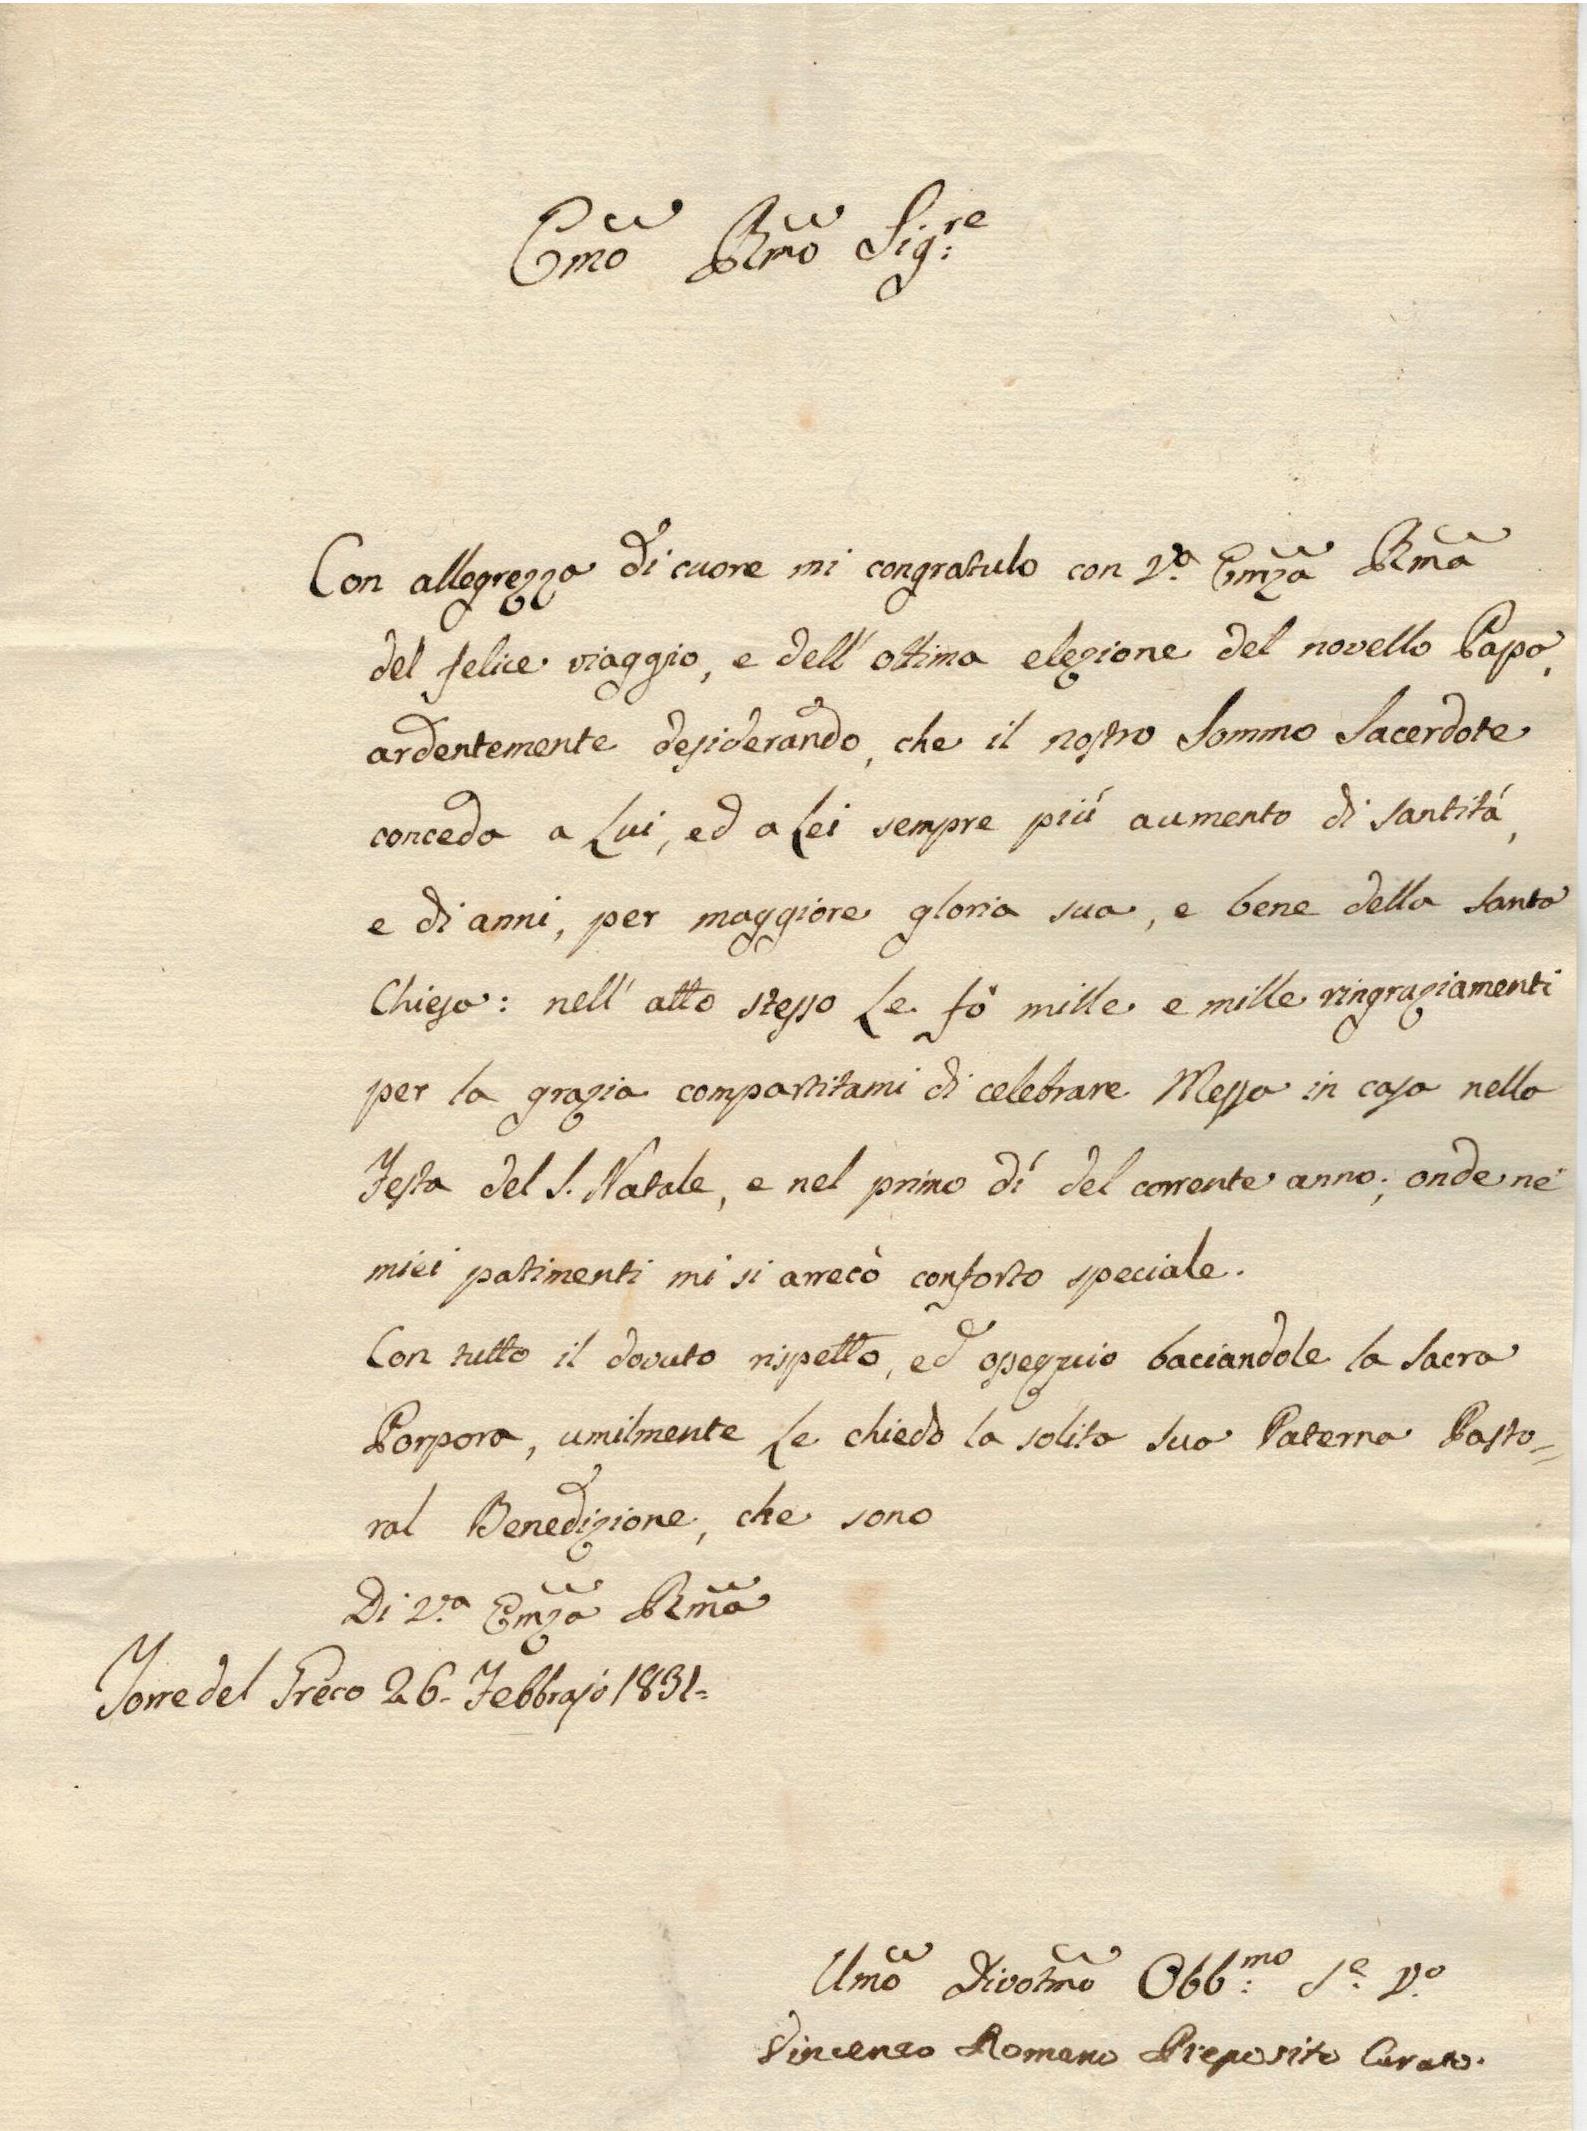 Emo Rmo Sig:re
Con allegrezza di cuore mi congratulo con V.a Emza Rma
del felice viaggio, e dell' ottima elezione del novello Papa,
ardentemente desiderando, che il nostro Sommo Sacerdote
conceda a Lui, ed a Lei sempre piú aumento di santitá,
e di anni, per maggiore gloria sua, e bene della Santa
Chiesa: nell' atto stesso Le fó mille e mille ringraziamenti
per la grazia compartitami di celebrare Messa in casa nella
Festa del S. Natale, e nel primo dí del corrente anno; onde ne'
miei patimenti mi si arrecò conforto speciale.
Con tutto il dovuto rispetto, ed ossequio baciandole la Sacra
Porpora, umilmente Le chiedo la solita sua Paterna Pasto=
ral Benedizione, che sono
Di V.a Emza Rma
Torre del Greco 26. Febbrajo 1831=
Umo Divotmo Obb:mo S.e V.o
Vincenzo Romano Preposito Curato.